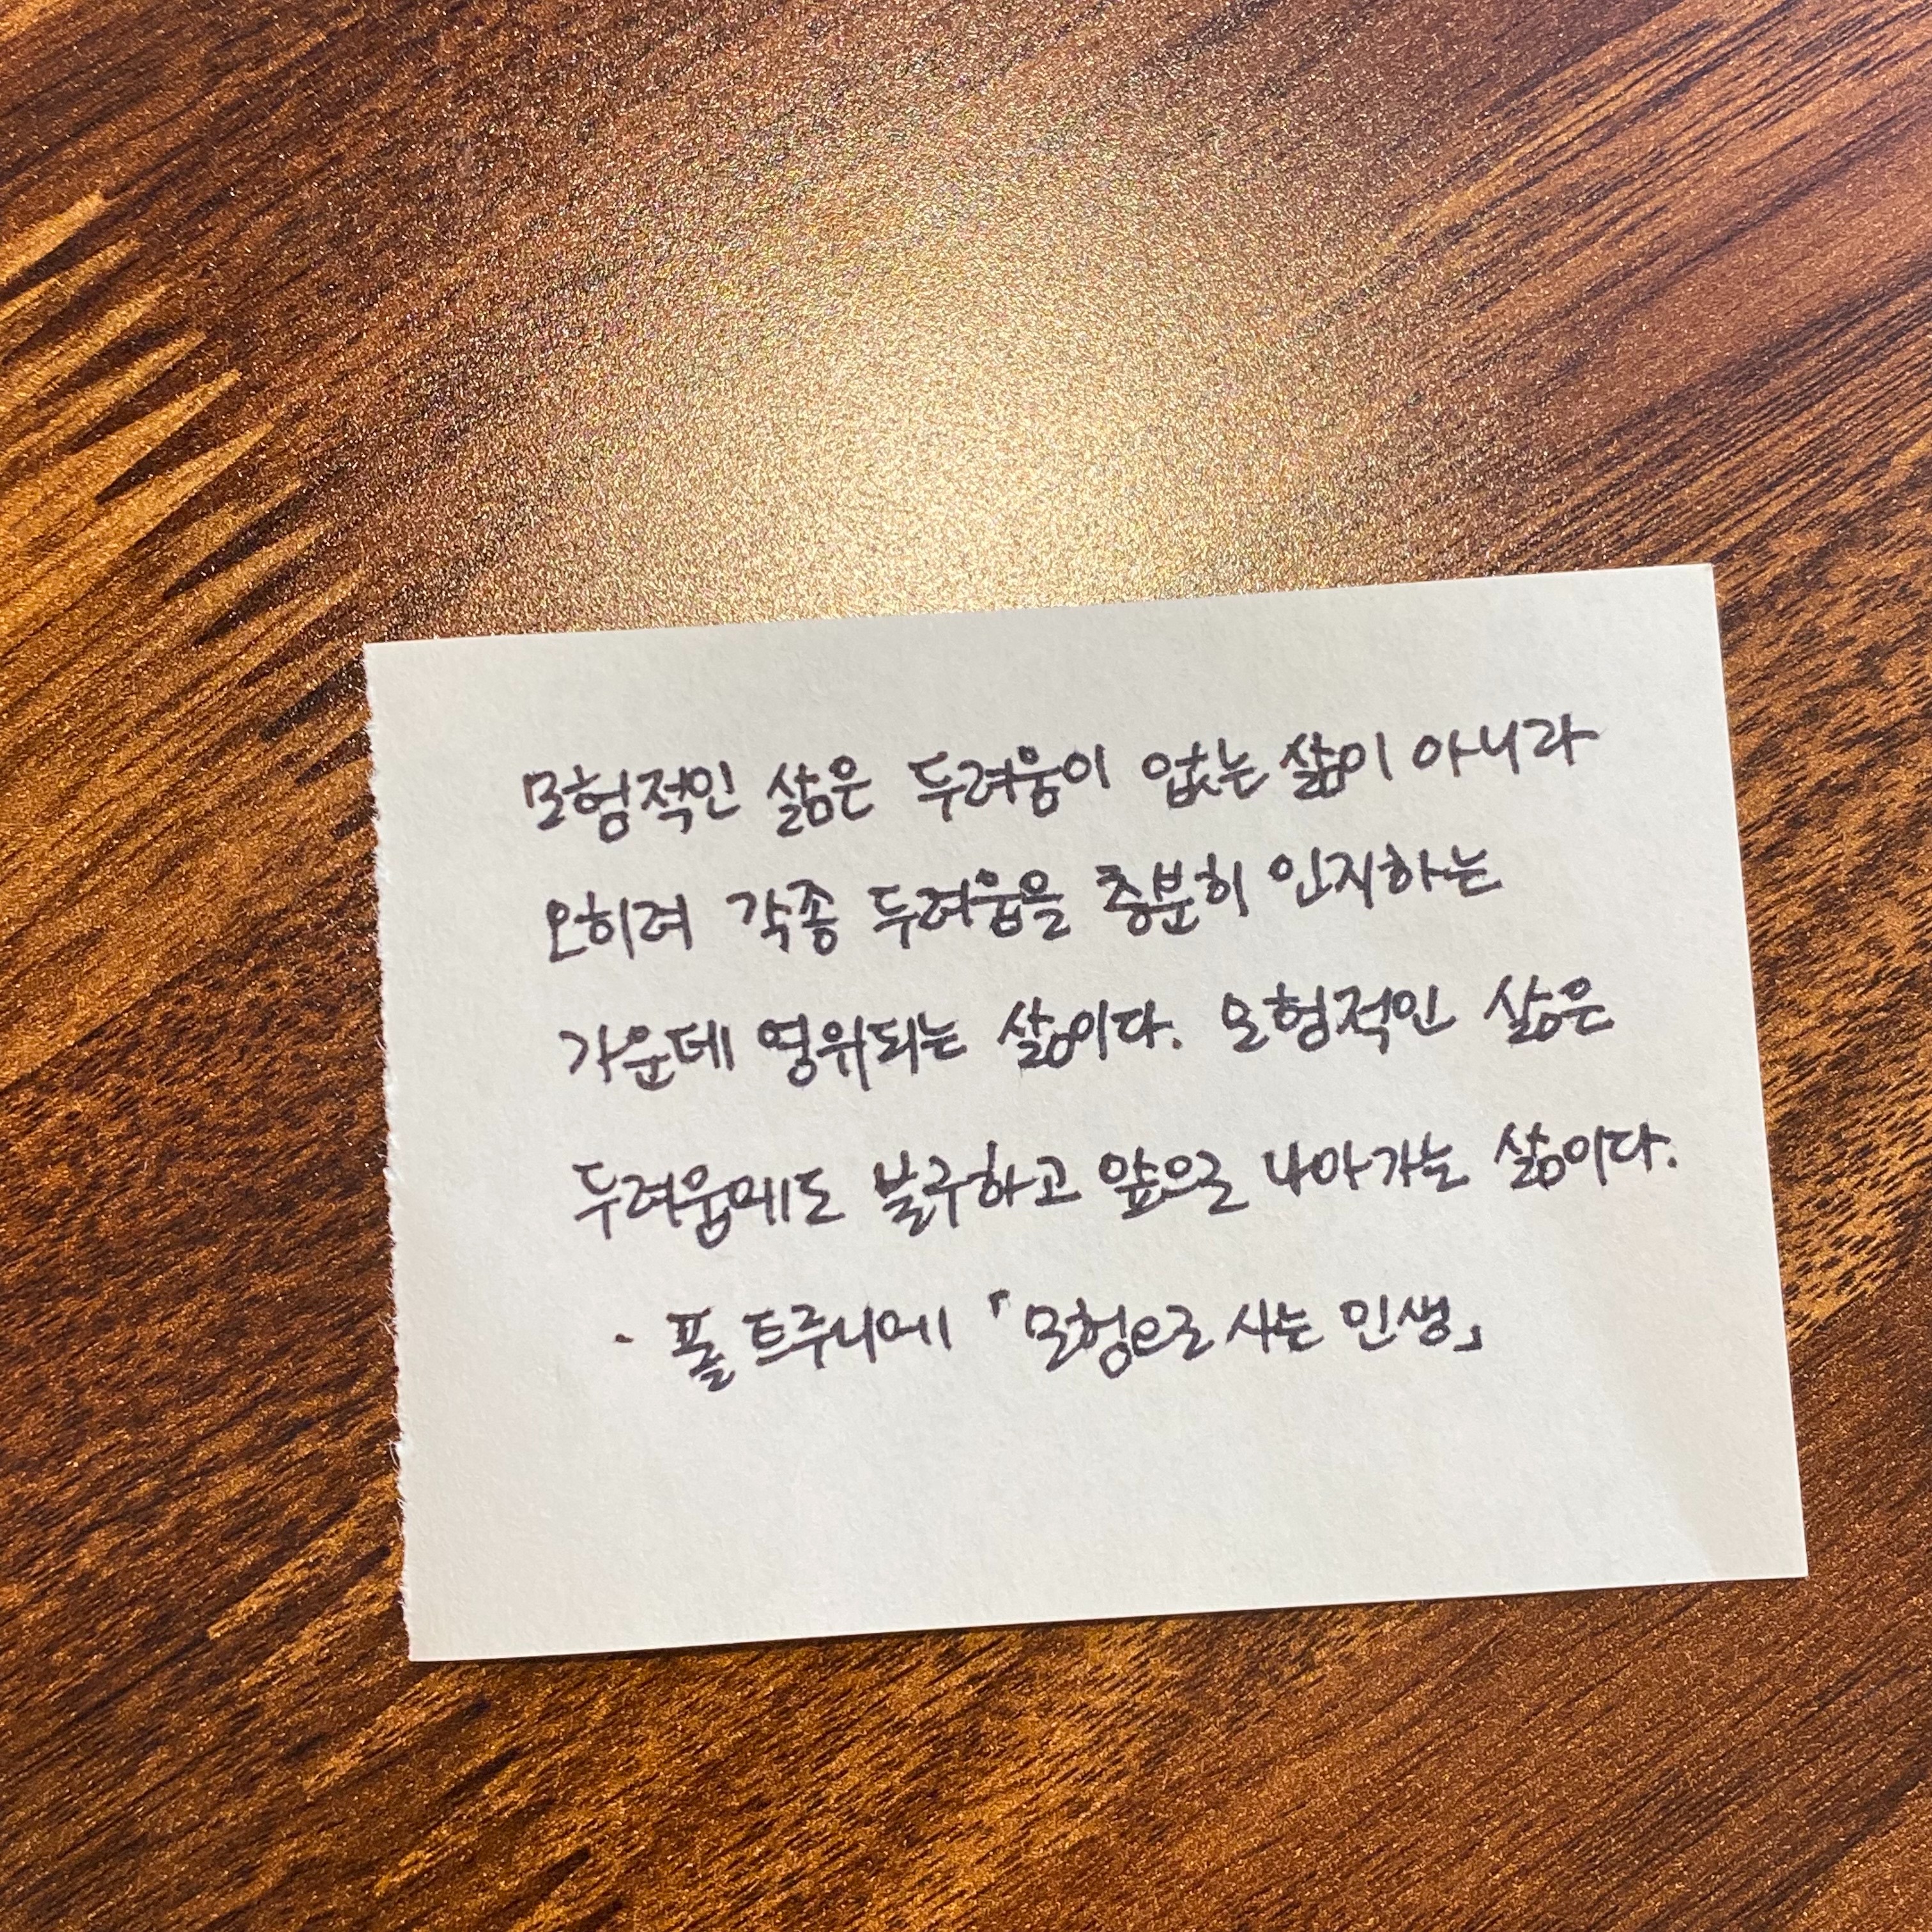 모험적인 삶은 두려움이 없는 삶이 아니라
오히려 각종 두려움을 충분히 인지하는
가운데 영위되는 삶이다. 모험적인 삶은
두려움에도 불구하고 앞으로 나아가는 삶이다.
- 폴 트루니에 「모험으로 사는 인생」